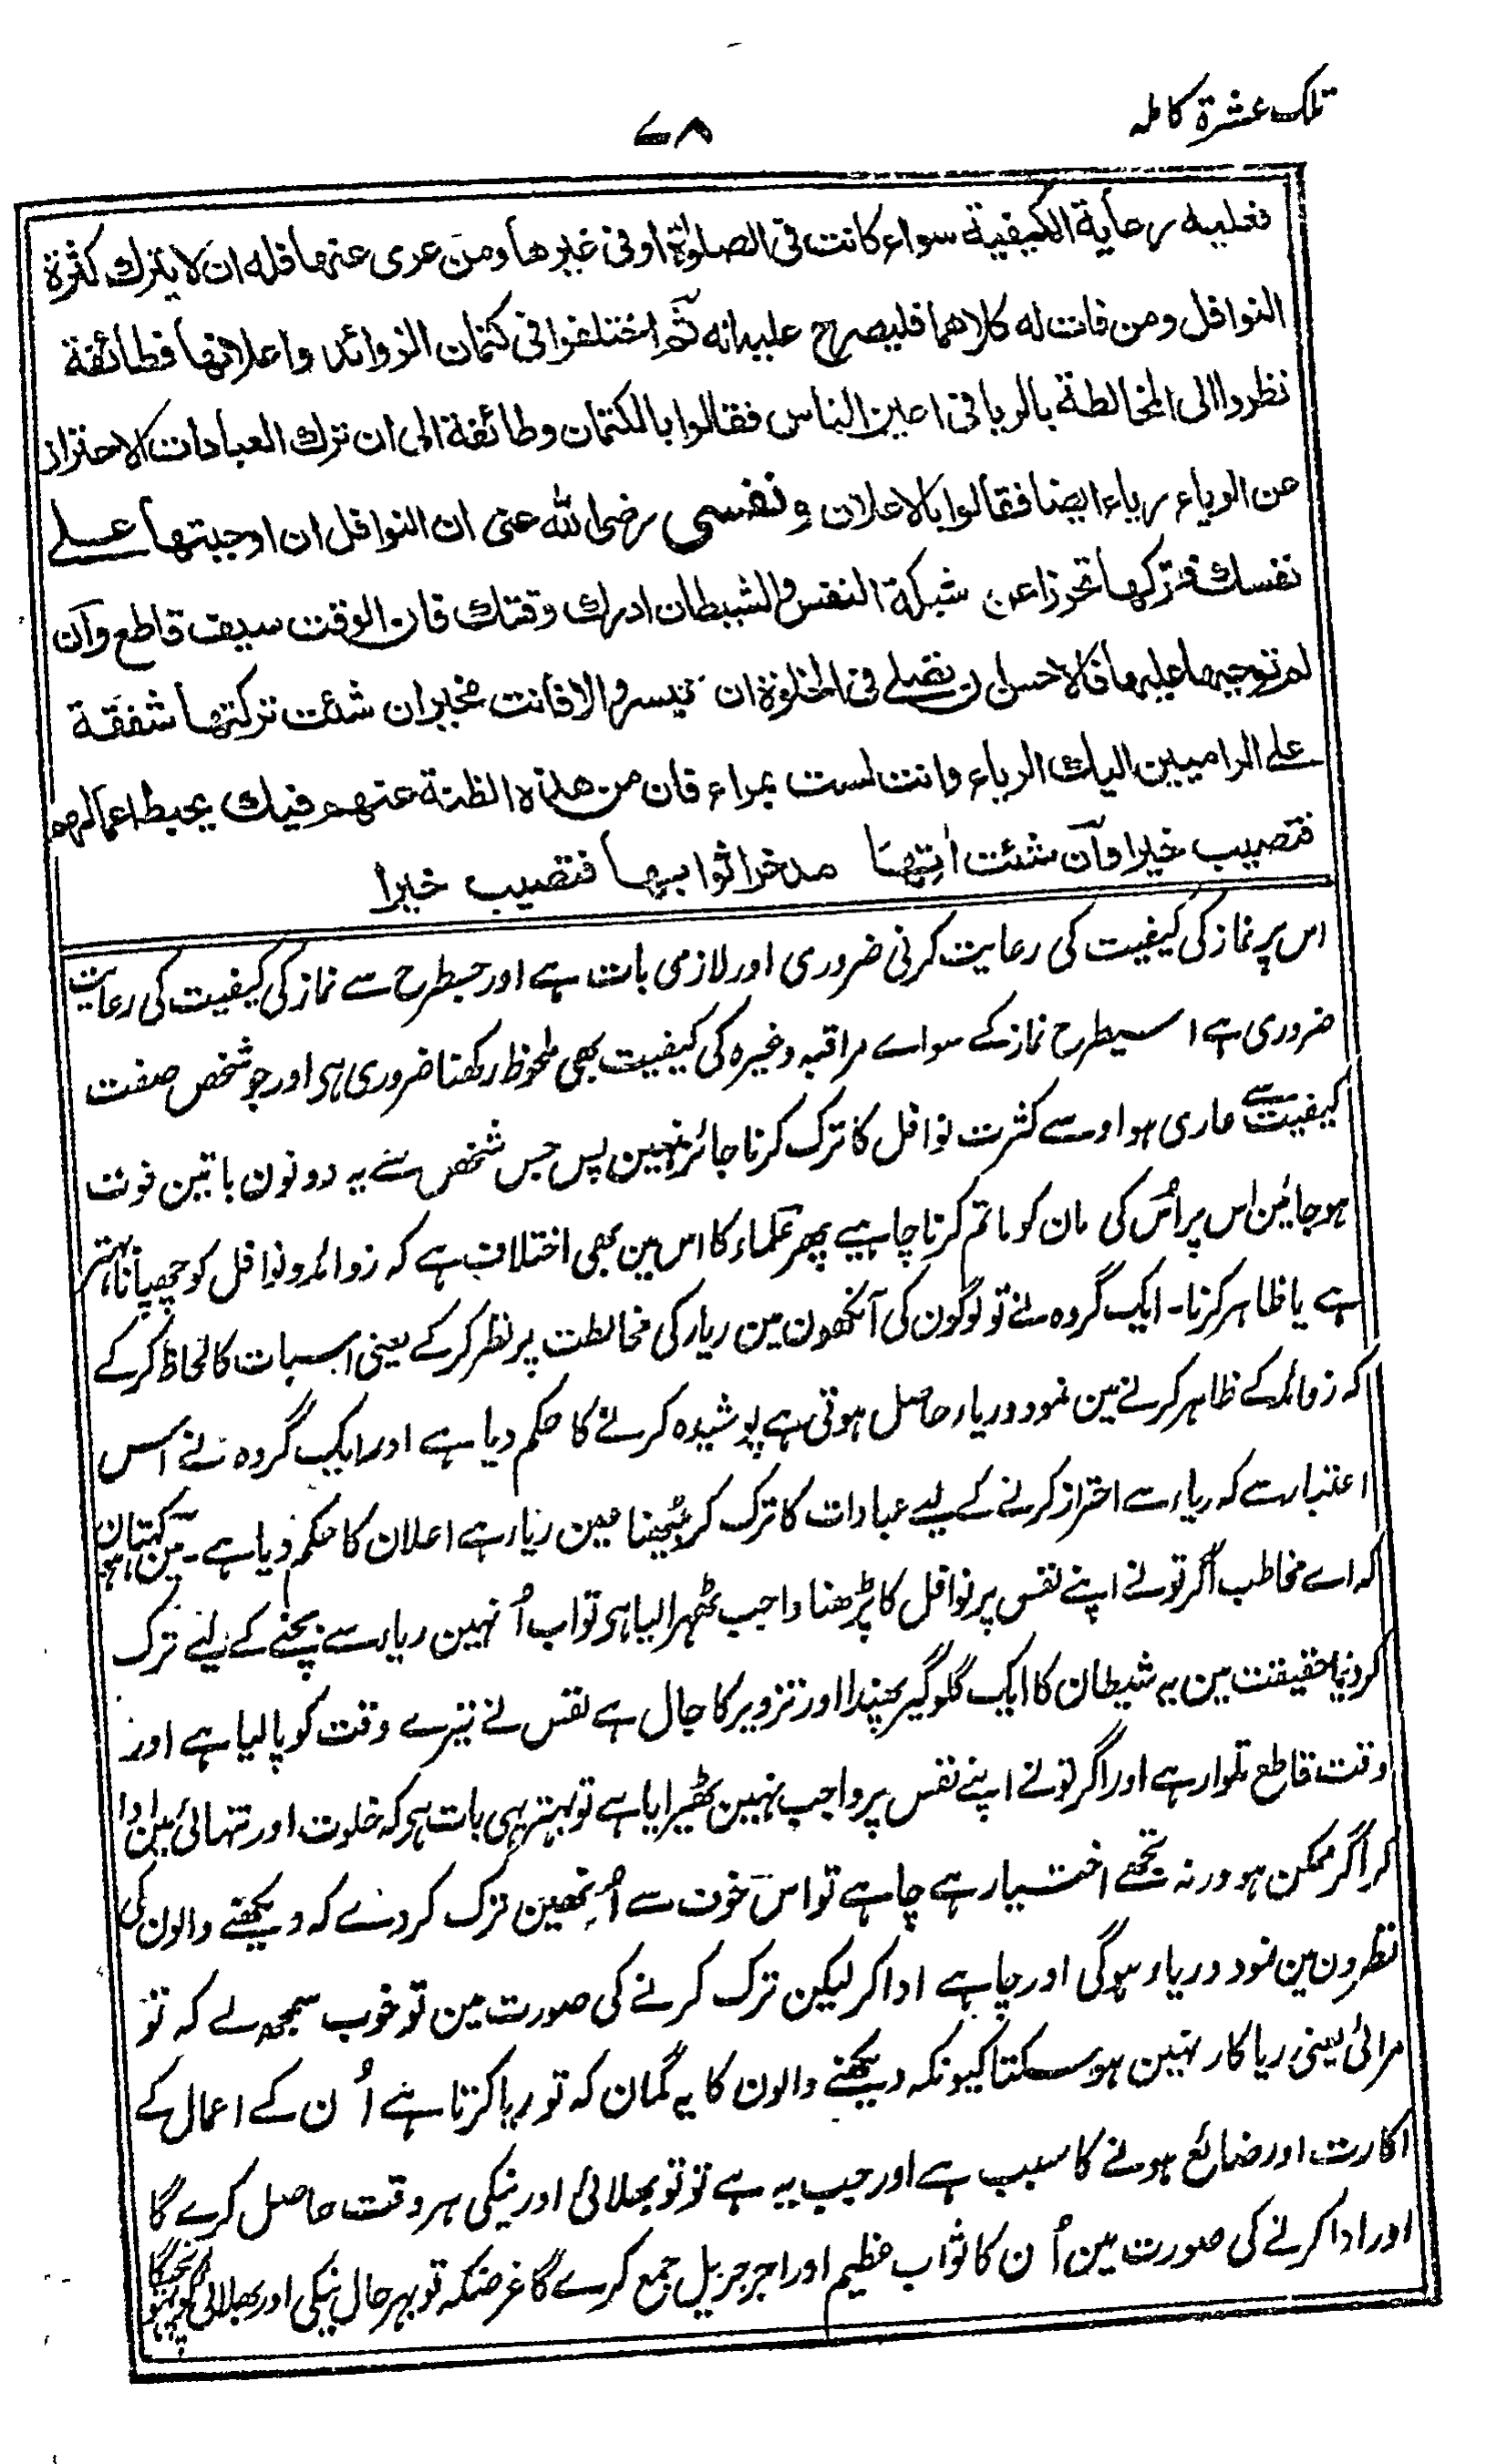 تلک عشرة کاملہ
۷۸
فعلیه رعایة الکیفیة سواء کانت فی الصلوٰة او فی غیرها ومن عری عنها فله ان لا یترك کثرة
النوافل ومن فاتت له کلاهما فلیصرح علیه انه ثم اختلفوا فی کتمان الزوائد واعلانها فطائفة
نظروا الی المخالطة بالریا فی اعین الناس فقالوا بالکتمان وطائفة الی ان ترك العبادات کلاحتراز
عن الریاء ریاء ایضا فقالوا بالاعلان ونفسی رضی الله عنی ان النوافل ان اوجبتها علے
نفسك فترکها تحرزا عن شبکة النفس والشیطان ادرك وقتك فان الوقت سیف قاطع وان
لم توجبها علیها فالاحسن ان تصلے فی الخلوة ان تیسر والا فانت مخیر ان شئت ترکتها شفقة
علے الرامیین الیك الریاء وانت لست بمراء فان من هذه الظنة عنهم فیك یحبط اعمالهم
فتصیب خیرا وان شئت اتیتها مدخرا ثوابها فتصیب خیرا
اس پر نماز کی کیفیت کی رعایت کرنی ضروری اور لازمی بات ہے اور جسطرح سے نماز کی کیفیت کی رعایت
ضروری ہے اسیطرح نماز کے سواے مراقبہ وغیرہ کی کیفیت بھی ملحوظ رکھنا ضروری ہی اور جو شخص صفت
کیفیت سے عاری ہو اوسے کثرت نوافل کا ترک کرنا جائز نہین پس جس شخص سے یہ دونون باتین فوت
ہو جائین اس پر اُس کی مان کو ماتم کرنا چاہیے پھر علماء کا اس مین بھی اختلاف ہے کہ زوائد و نوافل کو چھپانا بہتر
ہے یا ظاہر کرنا۔ ایک گروہ نے تو لوگون کی آنکھون مین ریاء کی مخالطت پر نظر کر کے یعنی اسبات کا لحاظ کر کے
کہ زوائد کے ظاہر کرنے مین نمود و ریاء حاصل ہوتی ہے پوشیدہ کرنے کا حکم دیا ہے اور ایک گروہ نے اس
اعتبار سے کہ ریاء سے احتراز کرنے کے لیے عبادات کا ترک کر بیٹھنا عین ریاء ہے اعلان کا حکم دیا ہے۔ مین کہتا ہون
کہ اے مخاطب اگر تو نے اپنے نفس پر نوافل کا پڑھنا واجب ٹھہرا لیا ہی تو اب اُنہین ریاء سے بچنے کے لیے ترک
کر دینا حقیقت مین یہ شیطان کا ایک گلوگیر پھندا اور تزویر کا جال ہے نفس نے تیرے وقت کو پا لیا ہے اور
وقت قاطع تلوار ہے اور اگر تو نے اپنے نفس پر واجب نہین ٹھیرایا ہے تو بہتر یہی بات ہی کہ خلوت اور تنہائی مین ادا
کر اگر ممکن ہو ورنہ تجھے اختیار ہے چاہے تو اس خوف سے اُنھین ترک کر دے کہ دیکھنے والون کی
نظرون مین نمود و ریاء ہو گی اور چاہے ادا کر لیکن ترک کرنے کی صورت مین تو خوب سمجھ لے کہ تو
مرائی یعنی ریا کار نہین ہو سکتا کیونکہ دیکھنے والون کا یہ گمان کہ تو ریا کرتا ہے اُن کے اعمال کے
اکارت اور ضائع ہونے کا سبب ہے اور جب یہ ہے تو تو بھلائی اور نیکی ہر وقت حاصل کرے گا
اور ادا کرنے کی صورت مین اُن کا ثواب عظیم اور اجر جزیل جمع کرے گا غرضکہ تو بہر حال نیکی اور بھلائی کو پہنچیگا